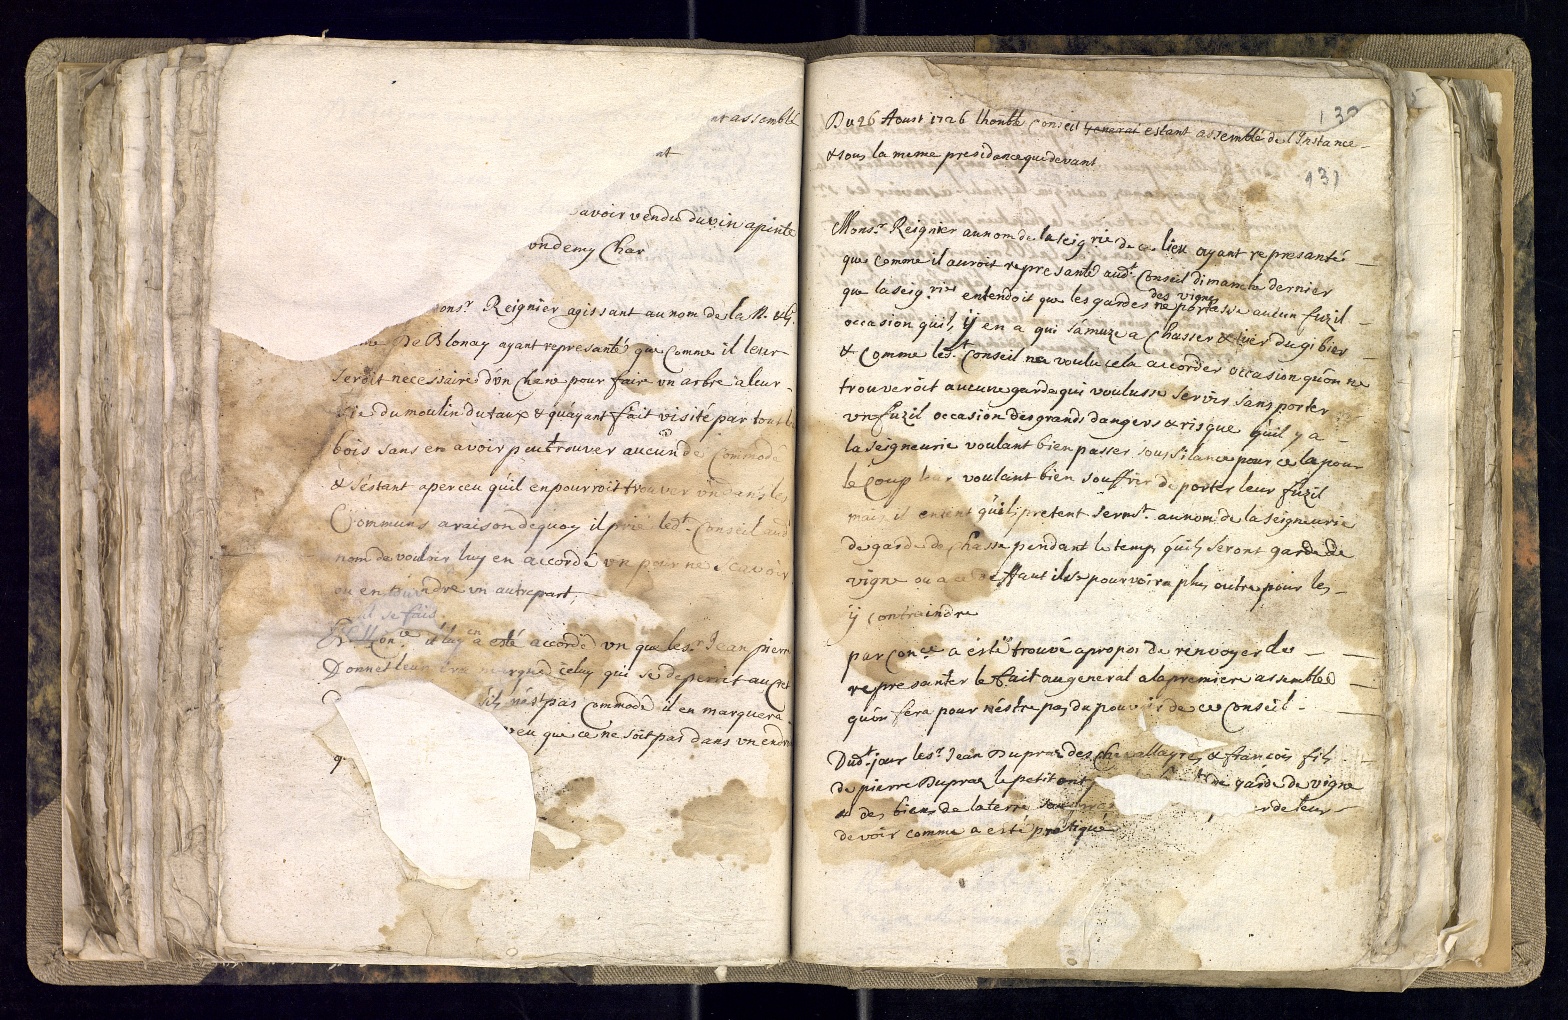 nt assemblé
nt
avoir vendu du vin a pinte
un demy Char
onsr. Reignier agissant au nom de la N. & G.
de Blonay ayant represanté que Comme il leur
seroit necessaire d'vn Chene pour faire vn arbre a leur
du moulin du faux & qu'ayant fait visité par tout l
bois sans en avoir peut trouver aucun de Commode
& s'estant aperceu qu'il en pourroit trouver vn dans les
Communs a raison dequoy il prie ledt. Conseil aud
nom de vouloir luy en accordé vn pour ne
ou en prendre vn autre part,
se fait
il luy en a esté accordé vn que les. Jean pierre
Donnet leur celuy qui se deperit au
n'est pas Commode il en marquera
veu que ce ne soit pas dans vn endr
q
130
Du 26 Aoust 1726 lhonble Conseil general estant assemblé de l'Instance
& sous la meme presidance que devant
131
Monsr. Reignier au nom de la seigrie de ce lieu ayant represanté
que Comme il auroit represanté audt. Conseil dimanche dernier
que la seigrie entendoit que les gardes des vignes ne portasse aucun fuzil
occasion qu'il y en a qui s'amuze a Chasser & tier du gibier
& Comme ledt. Conseil na voulu cela accorder occasion qu'on ne
trouveroit aucune garde qui voulusse servir sans porter
vn fuzil occasion des grands dangers & risque qu'il y a
la seigneurie voulant bien passer sous silance pour cela pour
le Coup voulant bien souffrir de porter leur fuzil
mais il entent qu'ils pretent sermt. au nom de la seigneurie
de garde de Chasse pendant le temp qu'ils seront garde de
vigne ou a ce deffaut il se pourvoira plus outre pour les
y contraindre
par Conce a esté trouvé a propos de renvoyer de
represanter le fait au general a la premiere assemblée
qu'on fera pour n'estre pas du pouvoir de ce Conseil
Dudt. jour les. Jean Dupraz des chevallayres & francois fils
de pierre Dupraz le petit ont de garde de vigne
& des biens de la terre r de leur
devoir comme a esté pratiqué